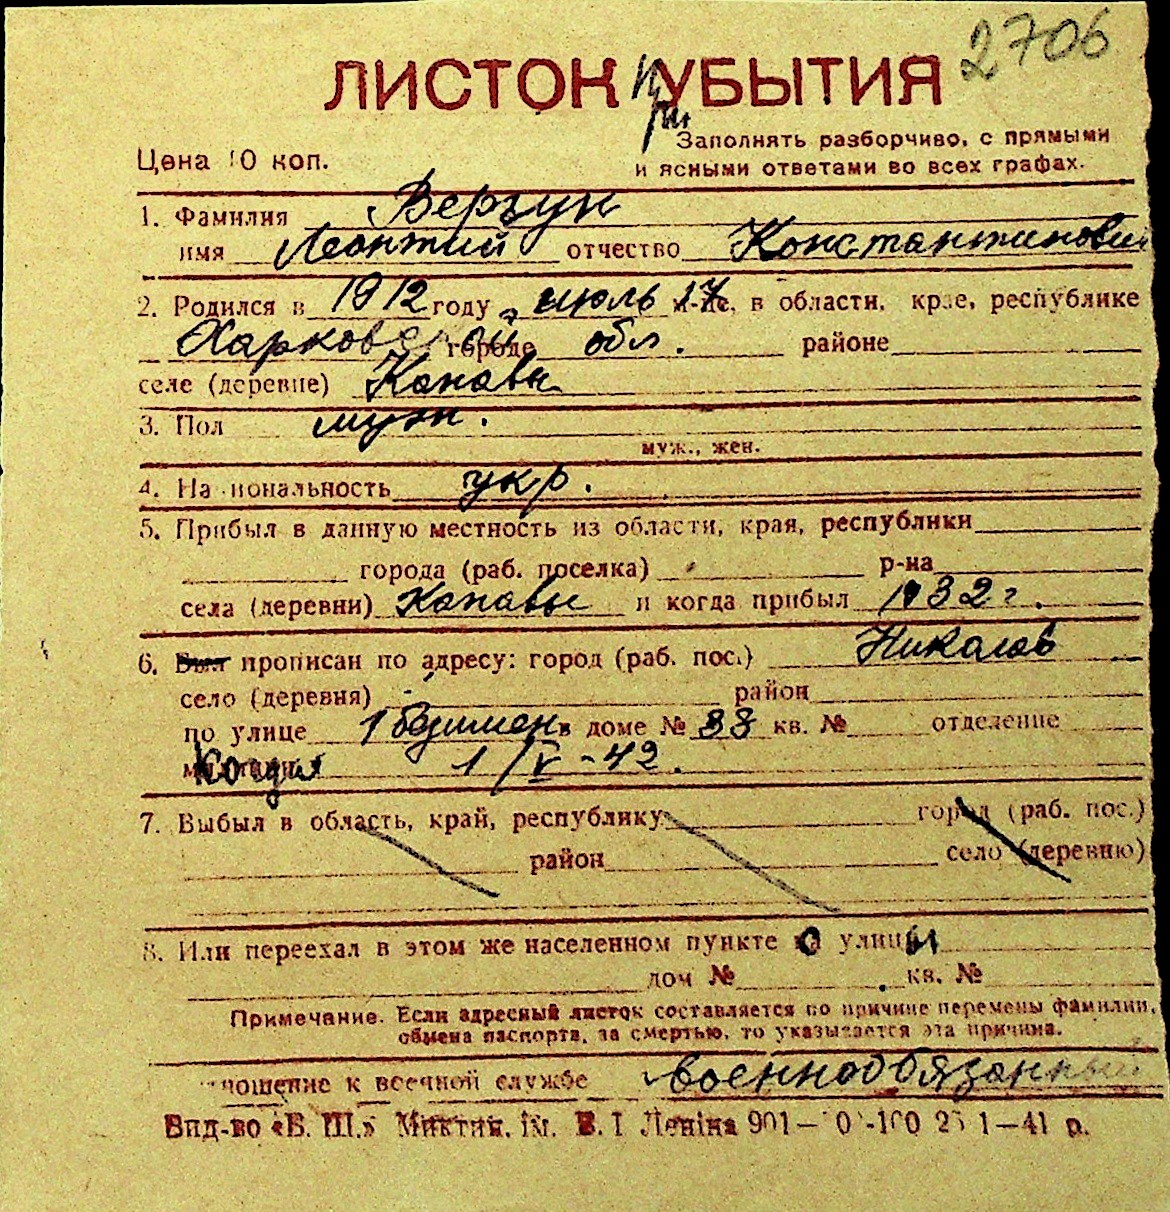 2706
ЛИСТОК УБЫТИЯ
При
Заполнять разборчиво, с прямыми
Цена 10 коп.
и ясными ответами во всех графах.
1. Фамилия Вергун
имя Леонтий отчество Константинович
2. Родился в 1912 году, июль 17 м-це, в области, крае, республике
Харковской городе обл. районе
селе (деревне) Канавы
3. Пол муж.
муж., жен.
4. Национальность укр.
5. Прибыл в данную местность из области, края, республики
города (раб. поселка) р-на
села (деревни) Канавы и когда прибыл 1932 г.
6. Был прописан по адресу: город (раб. пос.) Николаев
село (деревня) район
по улице 1 безимен в доме № 33 кв. № отделение
милиции Когда 1/V-42.
7. Выбыл в область, край, республику город (раб. пос.)
район село (деревню)
8. Или переехал в этом же населенном пункте с улицы
дом № кв. №
Примечание. Если адресный листок составляется по причине перемены фамилии,
обмена паспорта, за смертью, то указывается эта причина.
Отношение к военной службе военнообязанный
Вид-во «Б. Ш.» Миктип. ім. В. І Леніна 901— 25 1—41 р.